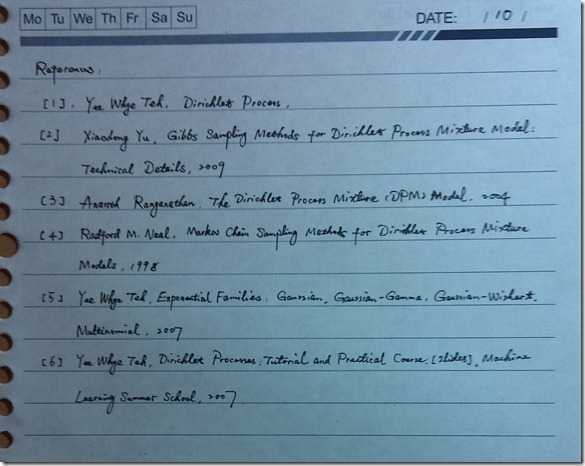 Mo Tu We Th Fr Sa Su DATE: / 10 /
References:
[1]. Yee Whye Teh. Dirichlet Process.
[2] Xiaodong Yu, Gibbs Sampling Methods for Dirichlet Process Mixture Model:
Technical Details, 2009
[3] Ananth Ranganathan, The Dirichlet Process Mixture (DPM) Model, 2004
[4] Radford M. Neal. Markov Chain Sampling Methods for Dirichlet Process Mixture
Models, 1998
[5] Yee Whye Teh, Exponential Families: Gaussian, Gaussian-Gamma, Gaussian-Wishart,
Multinomial, 2007
[6] Yee Whye Teh, Dirichlet Processes: Tutorial and Practical Course, [slides], Machine
Learning Summer School, 2007